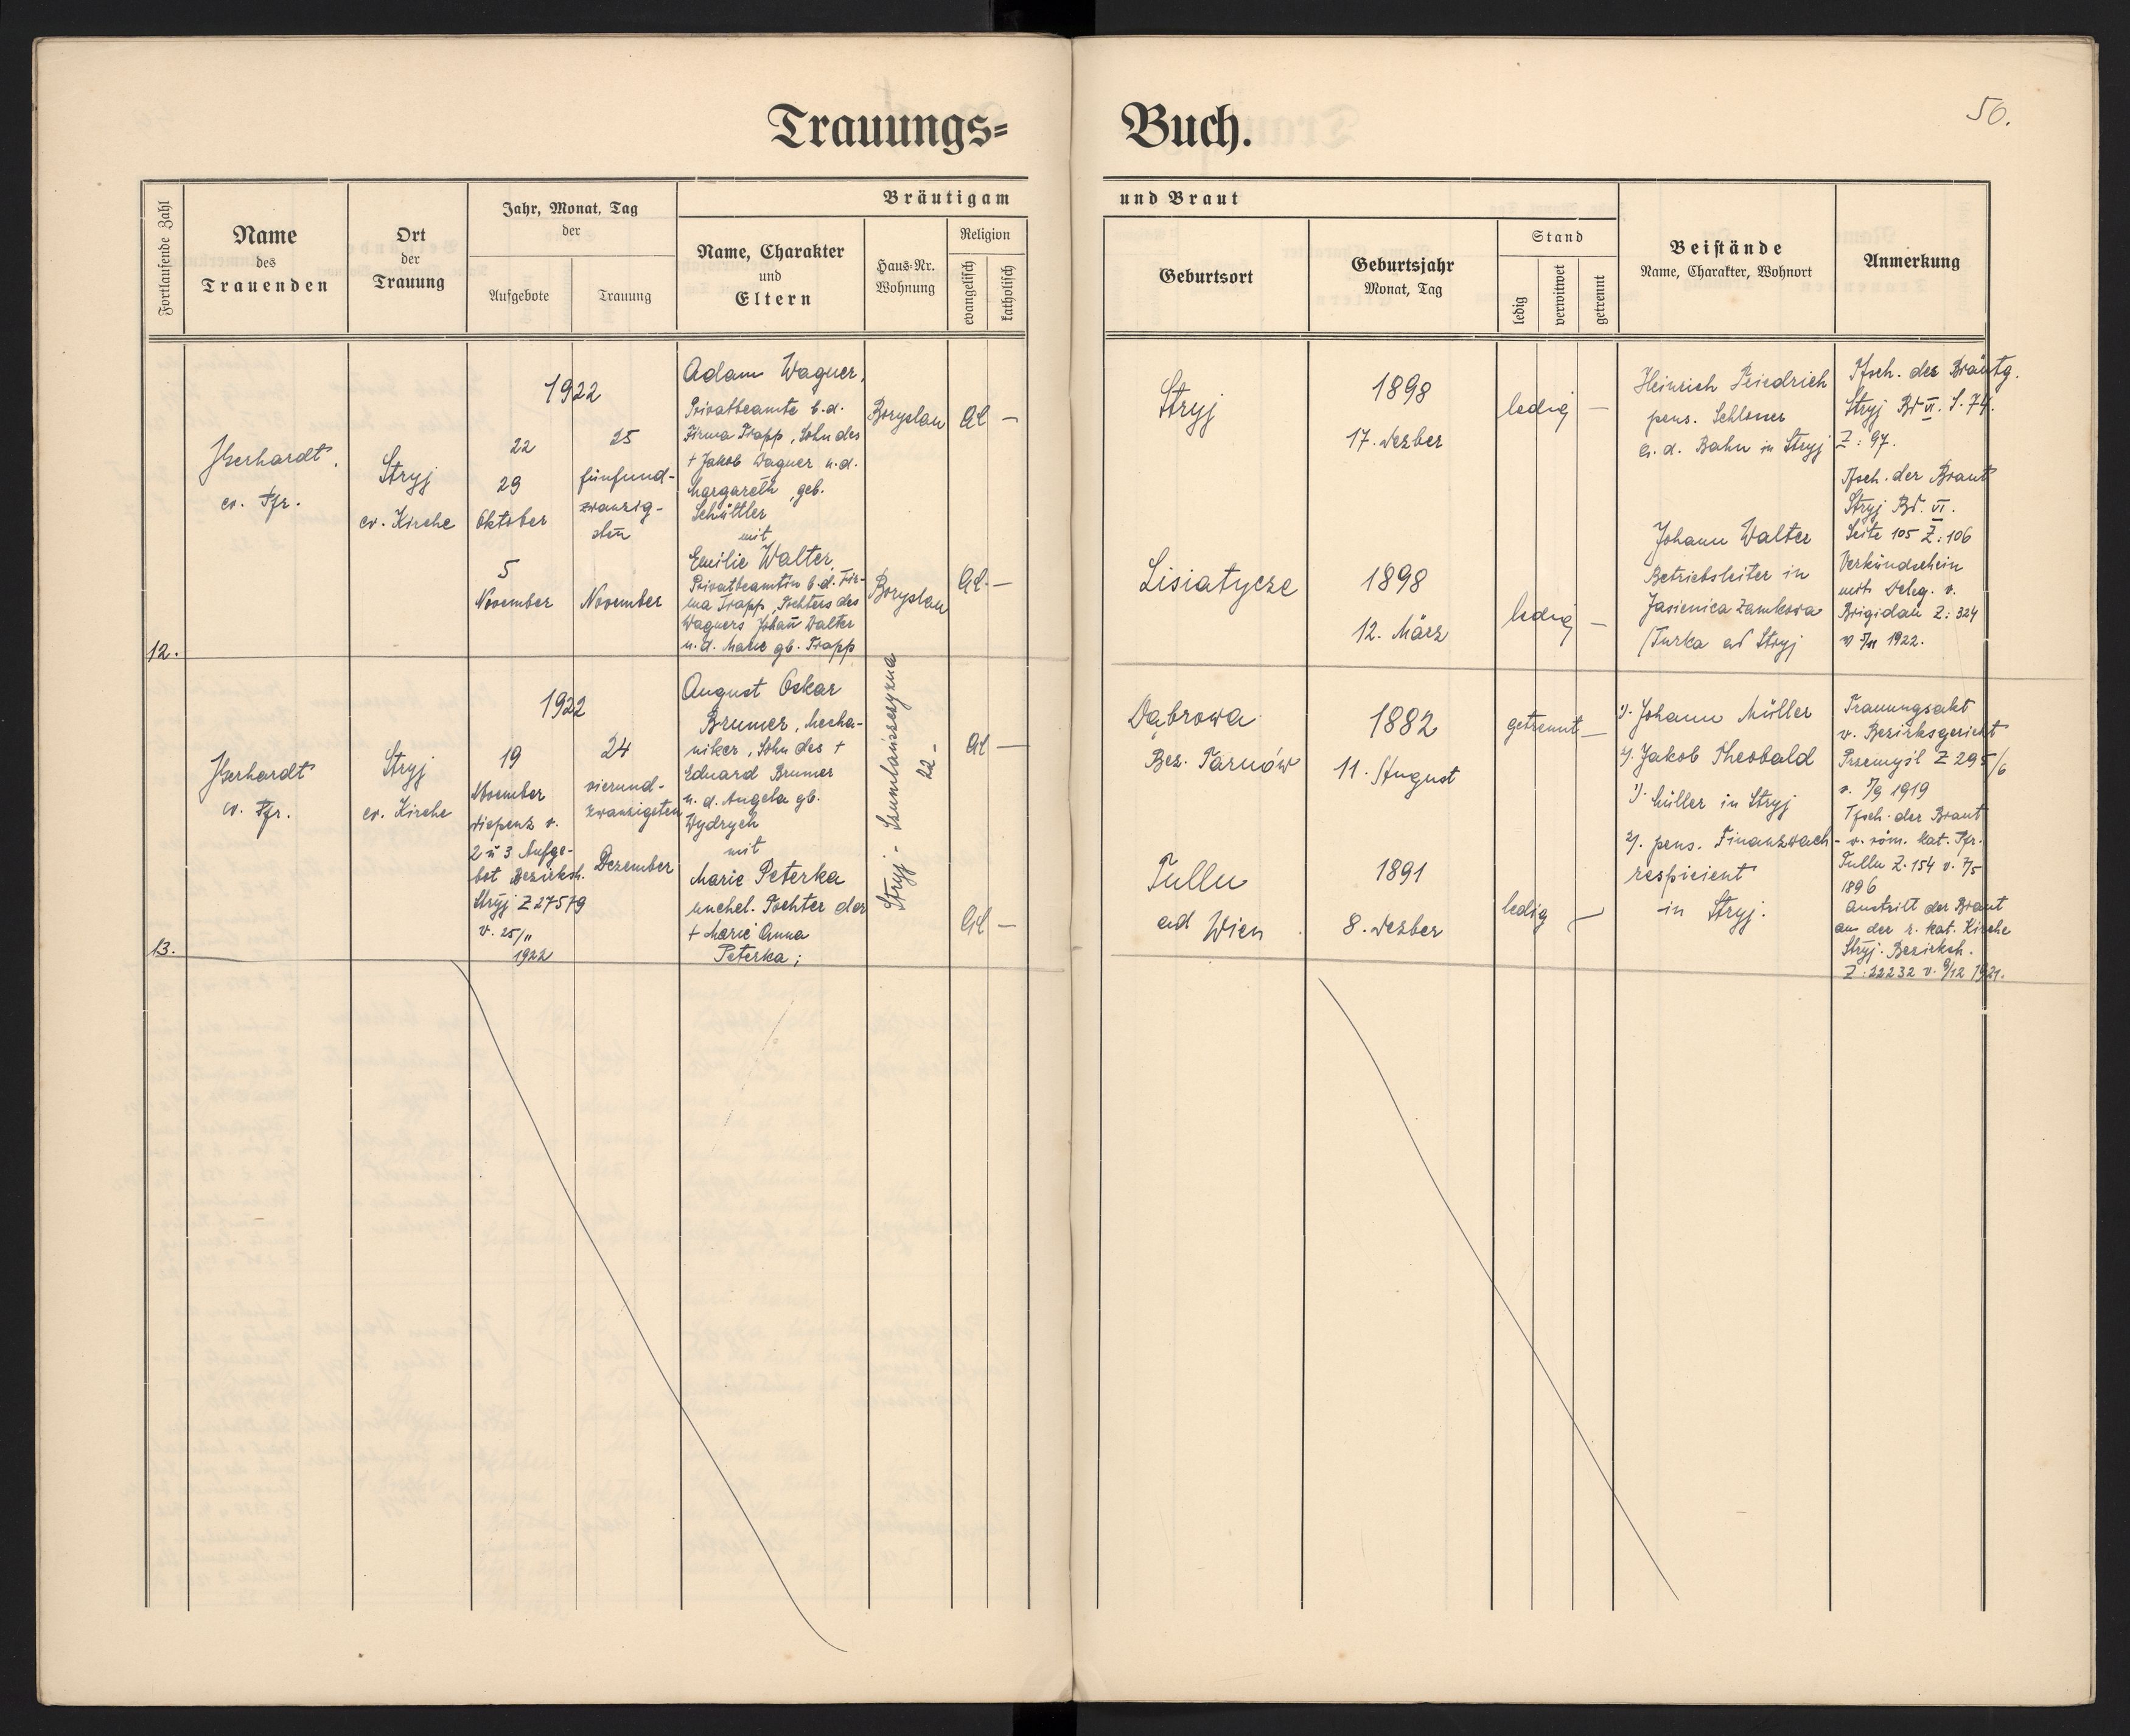 Trauungs=
Buch.
50.
Fortlaufende Zahl
Name
des
Trauenden
Ort
der
Trauung
Jahr, Monat, Tag
der
Aufgebote
Trauung
Bräutigam
Name, Charakter
und
Eltern
Haus-Nr.
Wohnung
Religion
evangelisch
katholisch
und Braut
Geburtsort
Geburtsjahr
Monat, Tag
Stand
ledig
verwitwet
getrennt
Beistände
Name, Charakter, Wohnort
Anmerkung
12.
ev. Pfr.
Stryj
ev. Kirche
1922
22
29
Oktober
5
November
25
fünfund-
zwanzig-
sten
November
Adam Wagner,
Privatbeamte b.d.
Firma Trapp, Sohn des
+ Jakob Wagner u.d.
Margareth, geb.
Schüttler
mit
Emilie Walter,
Privatbeamtin b.d. Fir-
ma Trapp, Tochter des
Wagners Johan̄ Walter
u.d. Marie gb. Trapp
Boryslau
Boryslau
—
—
Stryj
Lisiatycze
1898
17. Dezber
1898
12. März
ledig —
ledig —
Heinrich Friedrich
pens. Schlosser
a. d. Bahn in Stryj
Johann Walter
Betriebsleiter in
Jasienica Zamkowa
/Turka ad Stryj
Tfsch. des Bräutg.
Stryj Bd VI. S. 74.
Z: 97.
Tfsch. der Braut
Stryj Bd. VI.
Seite 105 Z: 106
Verkündschein
mit Deleg. v.
Brigidau Z: 324
1922.
13.
ev. Pfr.
Stryj
ev. Kirche
1922
19
November
dispenz v.
2 u 3 Aufge-
bot Bezirksh.
Stryj Z 27579
v. 25/11
1922
24
vierund-
zwanzigsten
Dezember
August Oskar
Brumer, Mecha-
niker, Sohn des +
Eduard Brumer
u. d. Angela gb.
Wydrych
mit
Marie Peterka
unehel. Tochter der
+ Marie Anna
Peterka;
Stryj -
22 -
—
—
Dąbrowa
Bez. Tarnów
Tulln
ad Wien
1882
11. August
1891
8. Dezber
getrennt —
ledig —
1). Johann Müller
2). Jakob Theobald
1). Müller in Stryj
2). pens. Finanzwach-
respicient
in Stryj.
Trauungsakt
v. Bezirksgericht
Przemyśl Z 295/6
v. 7/9 1919
Tfsch. der Braut
v. röm. kat. Pfr.
Tulln Z. 154 v. 7/5
1896
Austritt der Braut
aus der r. kat. Kirche
Stryj. Bezirksh.
Z: 22232 v. 9/12 1921.